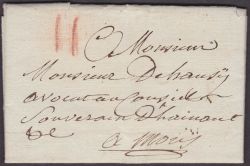 A Monsieur
Monsieur Dehaussÿ
avocat au Conseil
Souverain Dhainaut
&c
a Mons